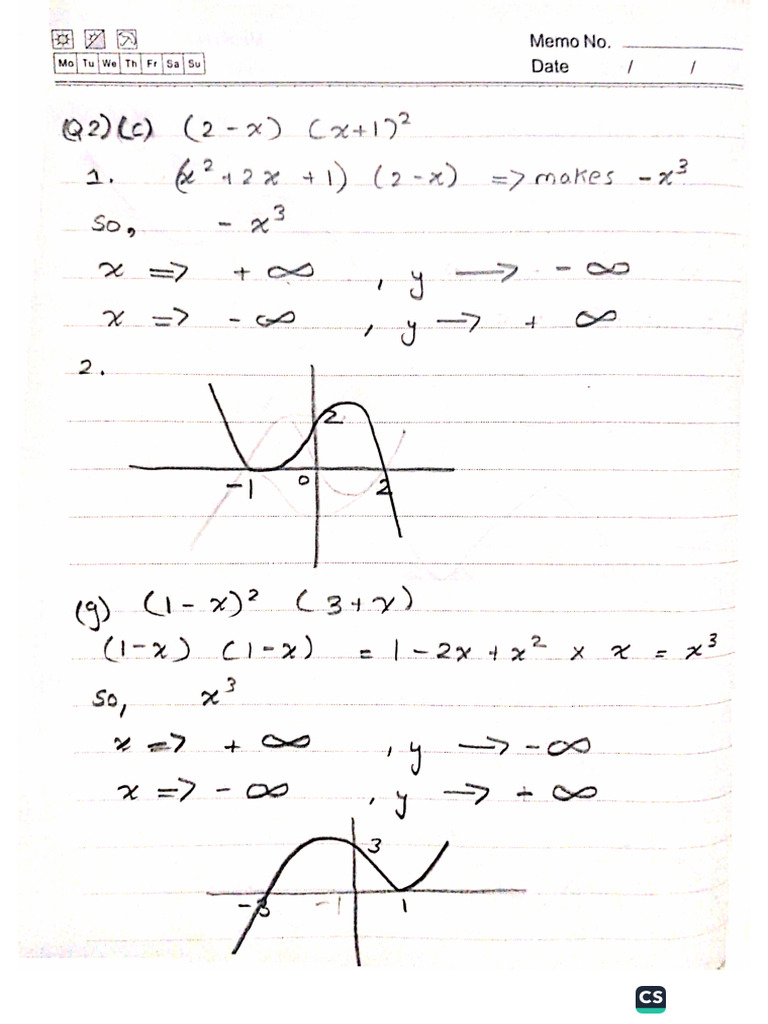 Memo No.
Mo Tu We Th Fr Sa Su
Date / /
Q2)(c) (2-x) (x+1)²
1. (x²+2x+1) (2-x) => makes -x³
so, -x³
x => +∞ , y → -∞
x => -∞ , y → +∞
2.
2
-1 0 2
(g) (1-x)² (3+x)
(1-x) (1-x) = 1-2x+x² × x = x³
so, x³
x => +∞ , y → -∞
x => -∞ , y → +∞
3
-3 -1 1
CS